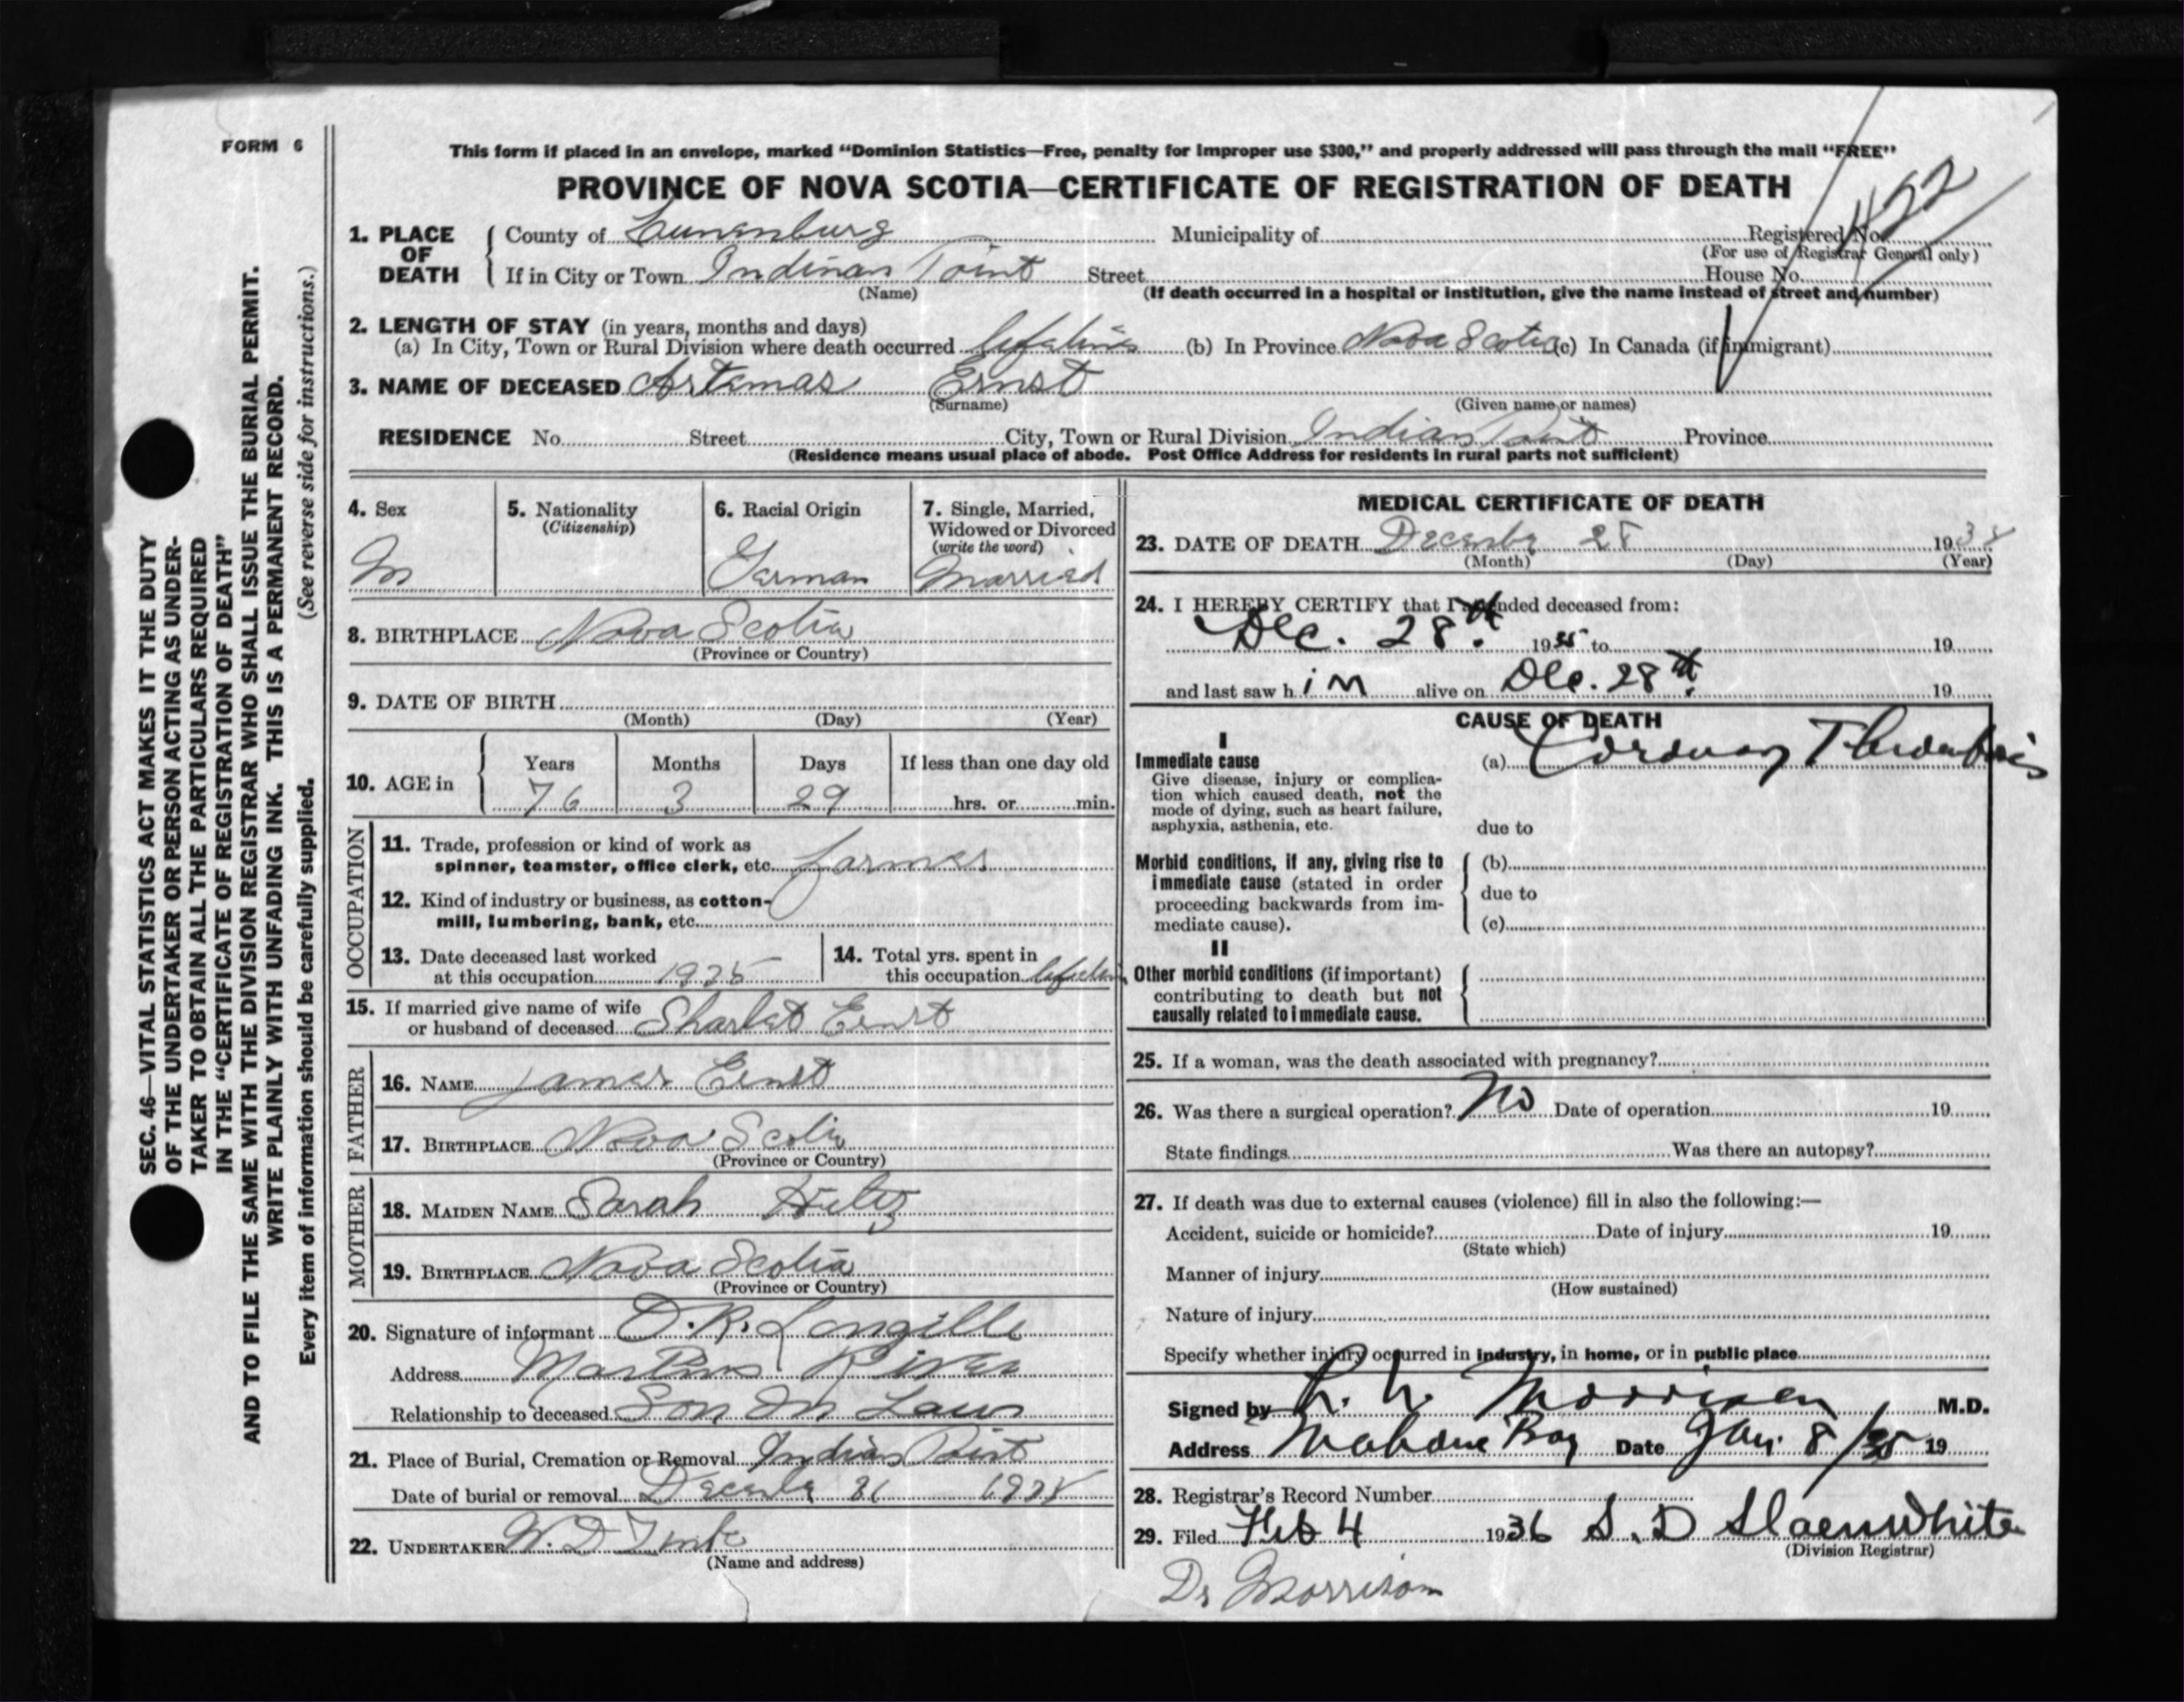 FORM 6
This form if placed in an envelope, marked “Dominion Statistics—Free, penalty for improper use $300,” and properly addressed will pass through the mail “FREE”
PROVINCE OF NOVA SCOTIA—CERTIFICATE OF REGISTRATION OF DEATH
1. PLACE OF DEATH County of Lunenburg Municipality of Registered No. 1422
(For use of Registrar General only)
If in City or Town Indian Point Street House No.
(Name) (If death occurred in a hospital or institution, give the name instead of street and number)
2. LENGTH OF STAY (in years, months and days)
(a) In City, Town or Rural Division where death occurred lifetime (b) In Province Nova Scotia (c) In Canada (if immigrant)
3. NAME OF DECEASED Artemas Ernst
(Surname) (Given name or names)
RESIDENCE No. Street City, Town or Rural Division Indian Point Province
(Residence means usual place of abode. Post Office Address for residents in rural parts not sufficient)
4. Sex M
5. Nationality (Citizenship)
6. Racial Origin German
7. Single, Married, Widowed or Divorced (write the word) Married
8. BIRTHPLACE Nova Scotia
(Province or Country)
9. DATE OF BIRTH
(Month) (Day) (Year)
10. AGE in Years 76 Months 3 Days 29 If less than one day old hrs. or min.
OCCUPATION
11. Trade, profession or kind of work as
spinner, teamster, office clerk, etc. farmer
12. Kind of industry or business, as cotton-
mill, lumbering, bank, etc.
13. Date deceased last worked
at this occupation 1935
14. Total yrs. spent in
this occupation lifetime
15. If married give name of wife
or husband of deceased Sharlet Ernst
FATHER
16. NAME James Ernst
17. BIRTHPLACE Nova Scotia
(Province or Country)
MOTHER
18. MAIDEN NAME Sarah Hiltz
19. BIRTHPLACE Nova Scotia
(Province or Country)
20. Signature of informant O. R. Langille
Address Martins River
Relationship to deceased Son In Law
21. Place of Burial, Cremation or Removal Indian Point
Date of burial or removal December 31
22. UNDERTAKER W. D
(Name and address)
MEDICAL CERTIFICATE OF DEATH
23. DATE OF DEATH December 28 193
(Month) (Day) (Year)
24. I HEREBY CERTIFY that I attended deceased from:
Dec. 28th. 19 to 19
and last saw h im alive on Dec. 28th. 19
CAUSE OF DEATH
I
Immediate cause
Give disease, injury or complica-
tion which caused death, not the
mode of dying, such as heart failure,
asphyxia, asthenia, etc.
(a) Coronary Thrombosis
due to
Morbid conditions, if any, giving rise to
immediate cause (stated in order
proceeding backwards from im-
mediate cause).
(b)
due to
(c)
II
Other morbid conditions (if important)
contributing to death but not
causally related to immediate cause.
25. If a woman, was the death associated with pregnancy?
26. Was there a surgical operation? No Date of operation 19
State findings Was there an autopsy?
27. If death was due to external causes (violence) fill in also the following:—
Accident, suicide or homicide? Date of injury 19
(State which)
Manner of injury
(How sustained)
Nature of injury
Specify whether injury occurred in industry, in home, or in public place
Signed by Morrison M.D.
Address Mahone Bay Date Jan. 8 19
28. Registrar’s Record Number
29. Filed Feb 4 1936 S. D Slaenwhite
(Division Registrar)
Dr Morrison
SEC. 46—VITAL STATISTICS ACT MAKES IT THE DUTY
OF THE UNDERTAKER OR PERSON ACTING AS UNDER-
TAKER TO OBTAIN ALL THE PARTICULARS REQUIRED
IN THE “CERTIFICATE OF REGISTRATION OF DEATH”
AND TO FILE THE SAME WITH THE DIVISION REGISTRAR WHO SHALL ISSUE THE BURIAL PERMIT.
WRITE PLAINLY WITH UNFADING INK. THIS IS A PERMANENT RECORD.
Every item of information should be carefully supplied. (See reverse side for instructions.)